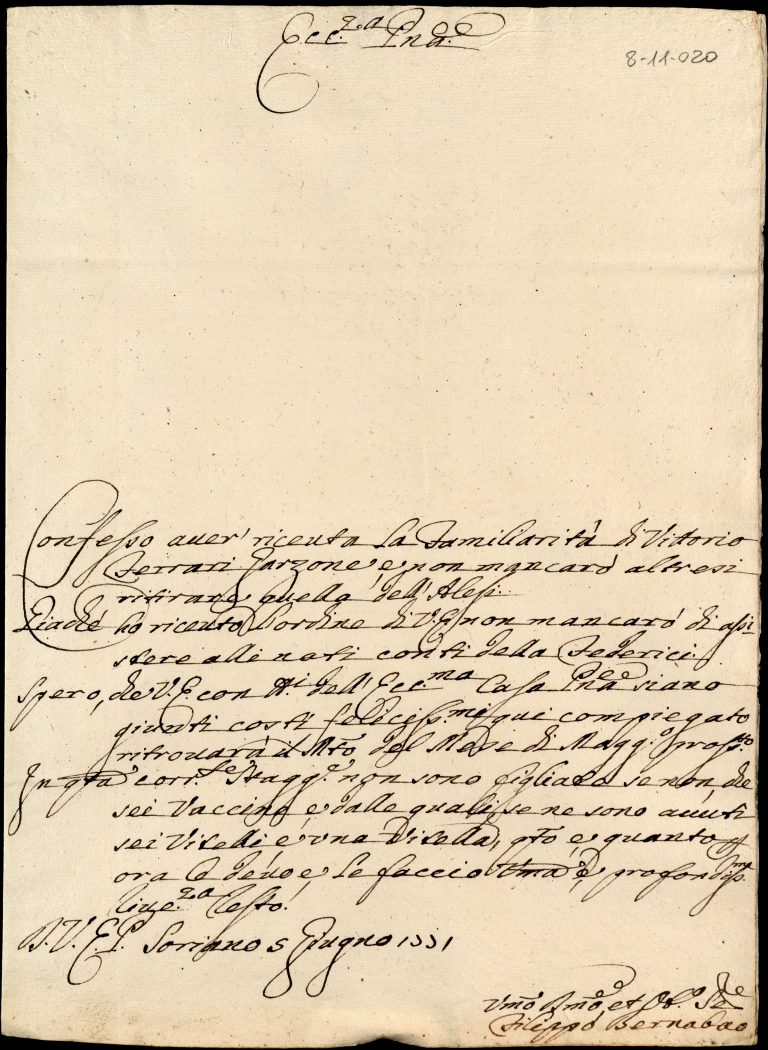 Ecc.za Pñale
8-11-020
Confesso auer' riceuta la Familiarità di Vittorio
Ferrari Garzone, e non mancarò altresi
ritirare quella dell'Alesi.
Giaché hò riceuto l'ordine di V.E. non mancarò di assi-
stere alli noti conti della Federici.
Spero, che V.E. con dell'Ecc.ma Casa Pñale siano
giunti costì felicissmi, qui compiegato
ritrouarà il Rṽto del Mese di Magg.o pross.o
In corr.te non sono figliate se non che
sei Vaccine, e dalle quali se ne sono auuti
sei Vitelli, e vna Vitella, qto è quanto p
ora le deuo, e le faccio profondiss.ma
riue.za Resto.
D.V.E.P. Soriano 5 Giugno 1731
Vmõ Dmõ, et Obo Sre
Filippo Bernabao